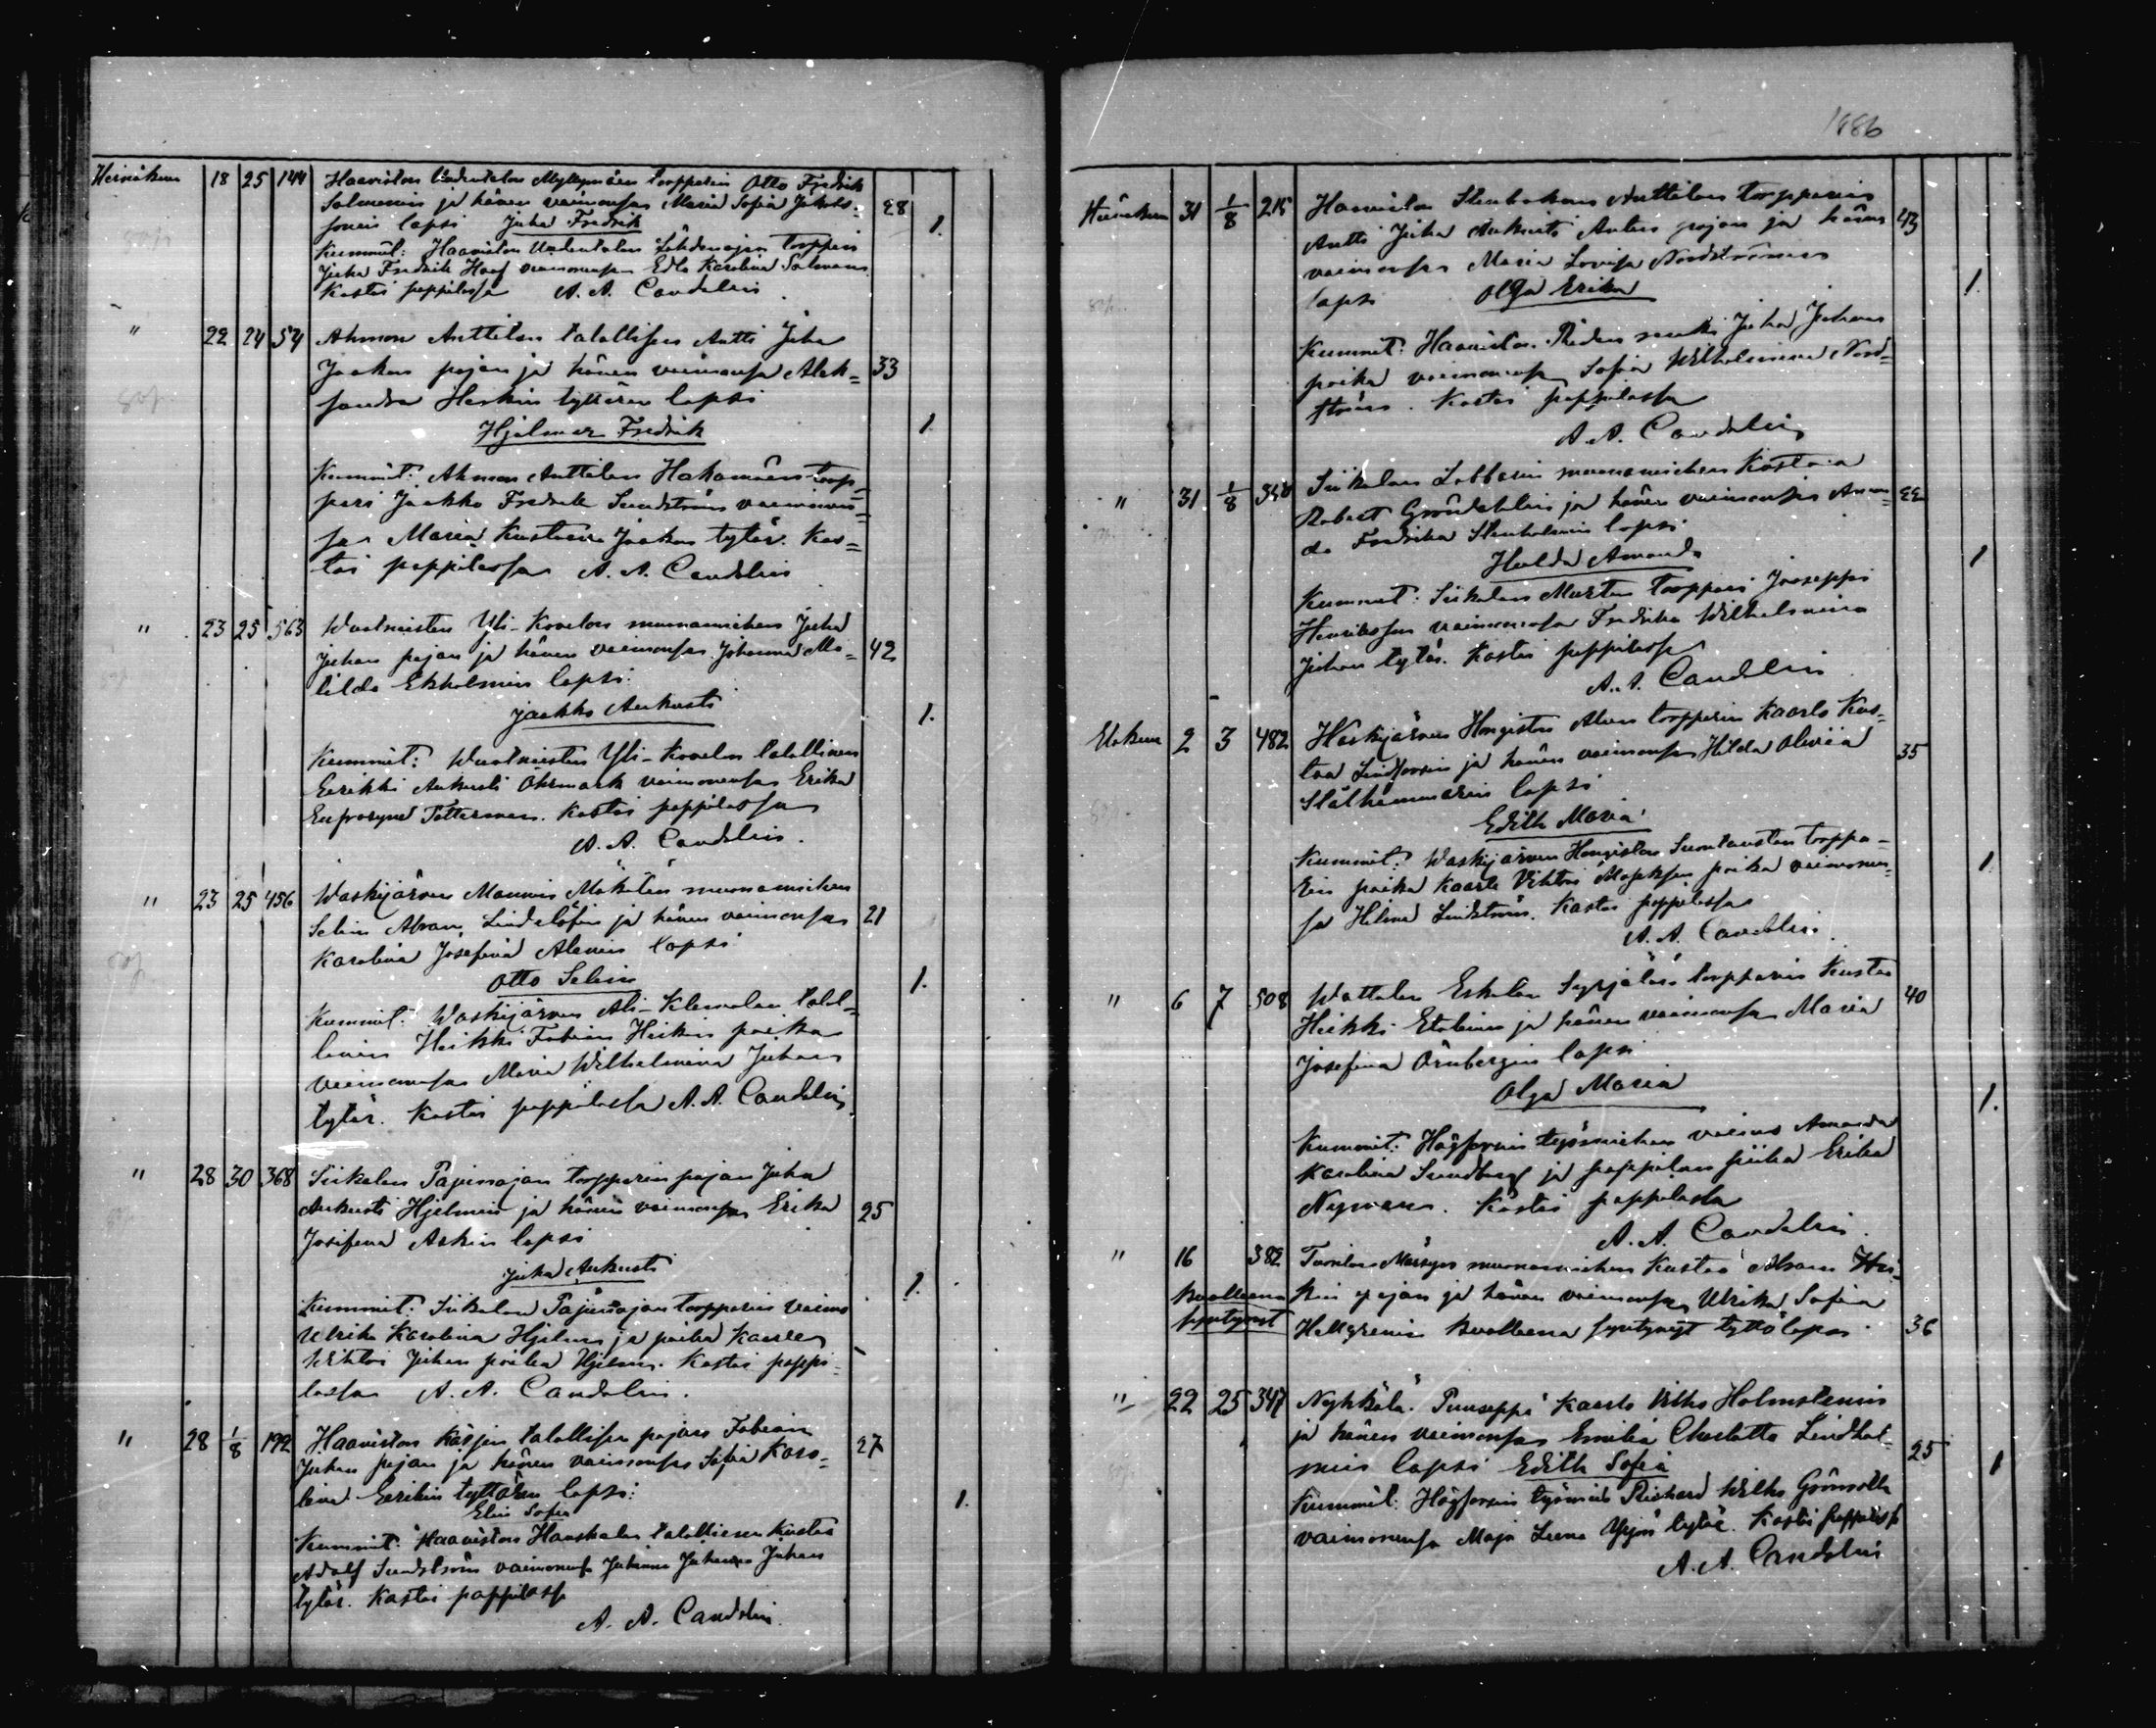 1886
Heinäkuu 18 25 144 Haaviston Uudentalon Myllymäen torpparin Otto Fredrik
Salmenin ja hänen vaimonsa Maria Sofia Jakobs- 28
sonin lapsi Juha Fredrik 1.
Kummit: Haaviston Uudentalon Lähdenojan torppari
Juha Fredrik Haaf vaimonensa Edla Karolina Salmens
Kastoi pappilassa A. A. Candelin
" 22 24 54 Ahmon Anttilan talollisen Antti Juha
Jaakon pojan ja hänen vaimonsa Alek= 33
sandra Heikin tyttären lapsi
Hjalmar Fredrik 1
Kummit: Ahmon Anttilan Hakamäen torp=
pari Jaakko Fredrik Sundström vaimonen=
sa Maria Kustaava Jaakon tytär. Kas=
toi pappilassa A. A. Candelin
" 23 25 563 Wuotnaisten Yli-Kovelon muonamiehen Juha
Juhan pojan ja hänen vaimonsa Johanna Ma= 42
tilda Ekholmin lapsi:
Jaakko Aukusti 1.
Kummit: Wuotnaisten Yli-Kovelon talollinen
Eerikki Aukusti Öhrmark vaimonensa Erika
Eufrosyne Fetterman. Kastoi pappilassa
A. A. Candelin.
" 23 25 456 Waskijärven Maunun Mäkilän muonamiehen
Selim Abram Lindelöfin ja hänen vaimonsa 21
Karolina Josefina Alenin lapsi
Otto Selim 1.
Kummit: Waskijärven Ali-Klemolan talol=
linen Heikki Fabian Heikin poika
vaimonensa Maria Wilhelmina Juhan
tytär. Kastoi pappilassa A. A. Candelin
" 28 30 368 Siikalan Pajunojan torpparin pojan Juha
Aukusti Hjelmin ja hänen vaimonsa Erika 25
Josefina Askin lapsi
Juha Aukusti 1.
Kummit: Siikalan Pajunojan torpparin vaimo
Ulrika Karolina Hjelm ja poika Kaarle
Wihtori Juhan poika Hjelm. Kastoi pappi-
lassa A. A. Candelin.
" 28 1/8 192 Haaviston Käsjen talollisen pojan Fabian
Juhan pojan ja hänen vaimonsa Sofia Karo= 27
lina Eerikin tyttären lapsi:
Elin Sofia 1.
Kummit: Haaviston Hauskalan talollinen Kustaa
Adolf Sundström vaimonensa Johanna Juhan
tytär. Kastoi pappilassa
A. A. Candelin.
Heinäkuu 31 1/8 215 Haaviston Stenbackan Anttilan torpparin
Antti Juha Aukusti Antin pojan ja hänen 43
vaimonsa Maria Lovisa Nordströmin
lapsi Olga Erika 1.
Kummit: Haaviston renki Juha Juhan
poika vaimonensa Sofia Wilhelmina Nord=
ström. Kastoi pappilassa
A. A. Candelin
" 31 1/8 Siikalan muonamiehen Kustaa
Robert Gröndahlin ja hänen vaimonsa Aman= 22
da Fredrika Stenholmin lapsi
Hulda Amanda 1
Kummit: Siikalan Murton torppari Jooseppi
Henriksson vaimonensa Fredrika Wilhelmina
Juhan tytär. Kastoi pappilassa
A. A. Candelin
Elokuu 2 3 482 Waskijärven Hongiston Alun torpparin Kaarlo Kus=
taa Lindforsin ja hänen vaimonsa Hilda Olivia 35
Stålhammarin lapsi
Edith Maria 1.
Kummit: Waskijärven Hongiston Suontaustan torppa-
rin poika Kaarle Vihtori Mooseksen poika vaimonen=
sa Hilma Lindström. Kastoi pappilassa
A. A. Candelin.
" 6 7 508 Wattolan Eskolan Syrjälän torpparin Kustaa
Heikki Etolinin ja hänen vaimonsa Maria 40
Josefina Örnbergin lapsi
Olga Maria 1.
Kummit: Högforsin työmiehen vaimo Amanda
Karolina Sundberg ja pappilan piika Erika
Nyman. Kastoi pappilassa
A. A. Candelin.
" 16 382 Tuorilan Märsyn muonamiehen Kustaa Abram Hei=
kuolleena kin pojan ja hänen vaimonsa Ulrika Sofia
syntynyt Hellgrenin kuolleena syntynyt tyttölapsi 36
" 22 25 347 Nyhkälä. Puuseppä Kaarlo Vilho Holmstenin
ja hänen vaimonsa Emilia Charlotta Lindhol=
min lapsi Edith Sofia 25 1
Kummit: Högforsin työmies Richard Wilho Grönroth
vaimonensa Maja Leena Yrjön tytär. Kastoi pappilassa
A. A. Candelin